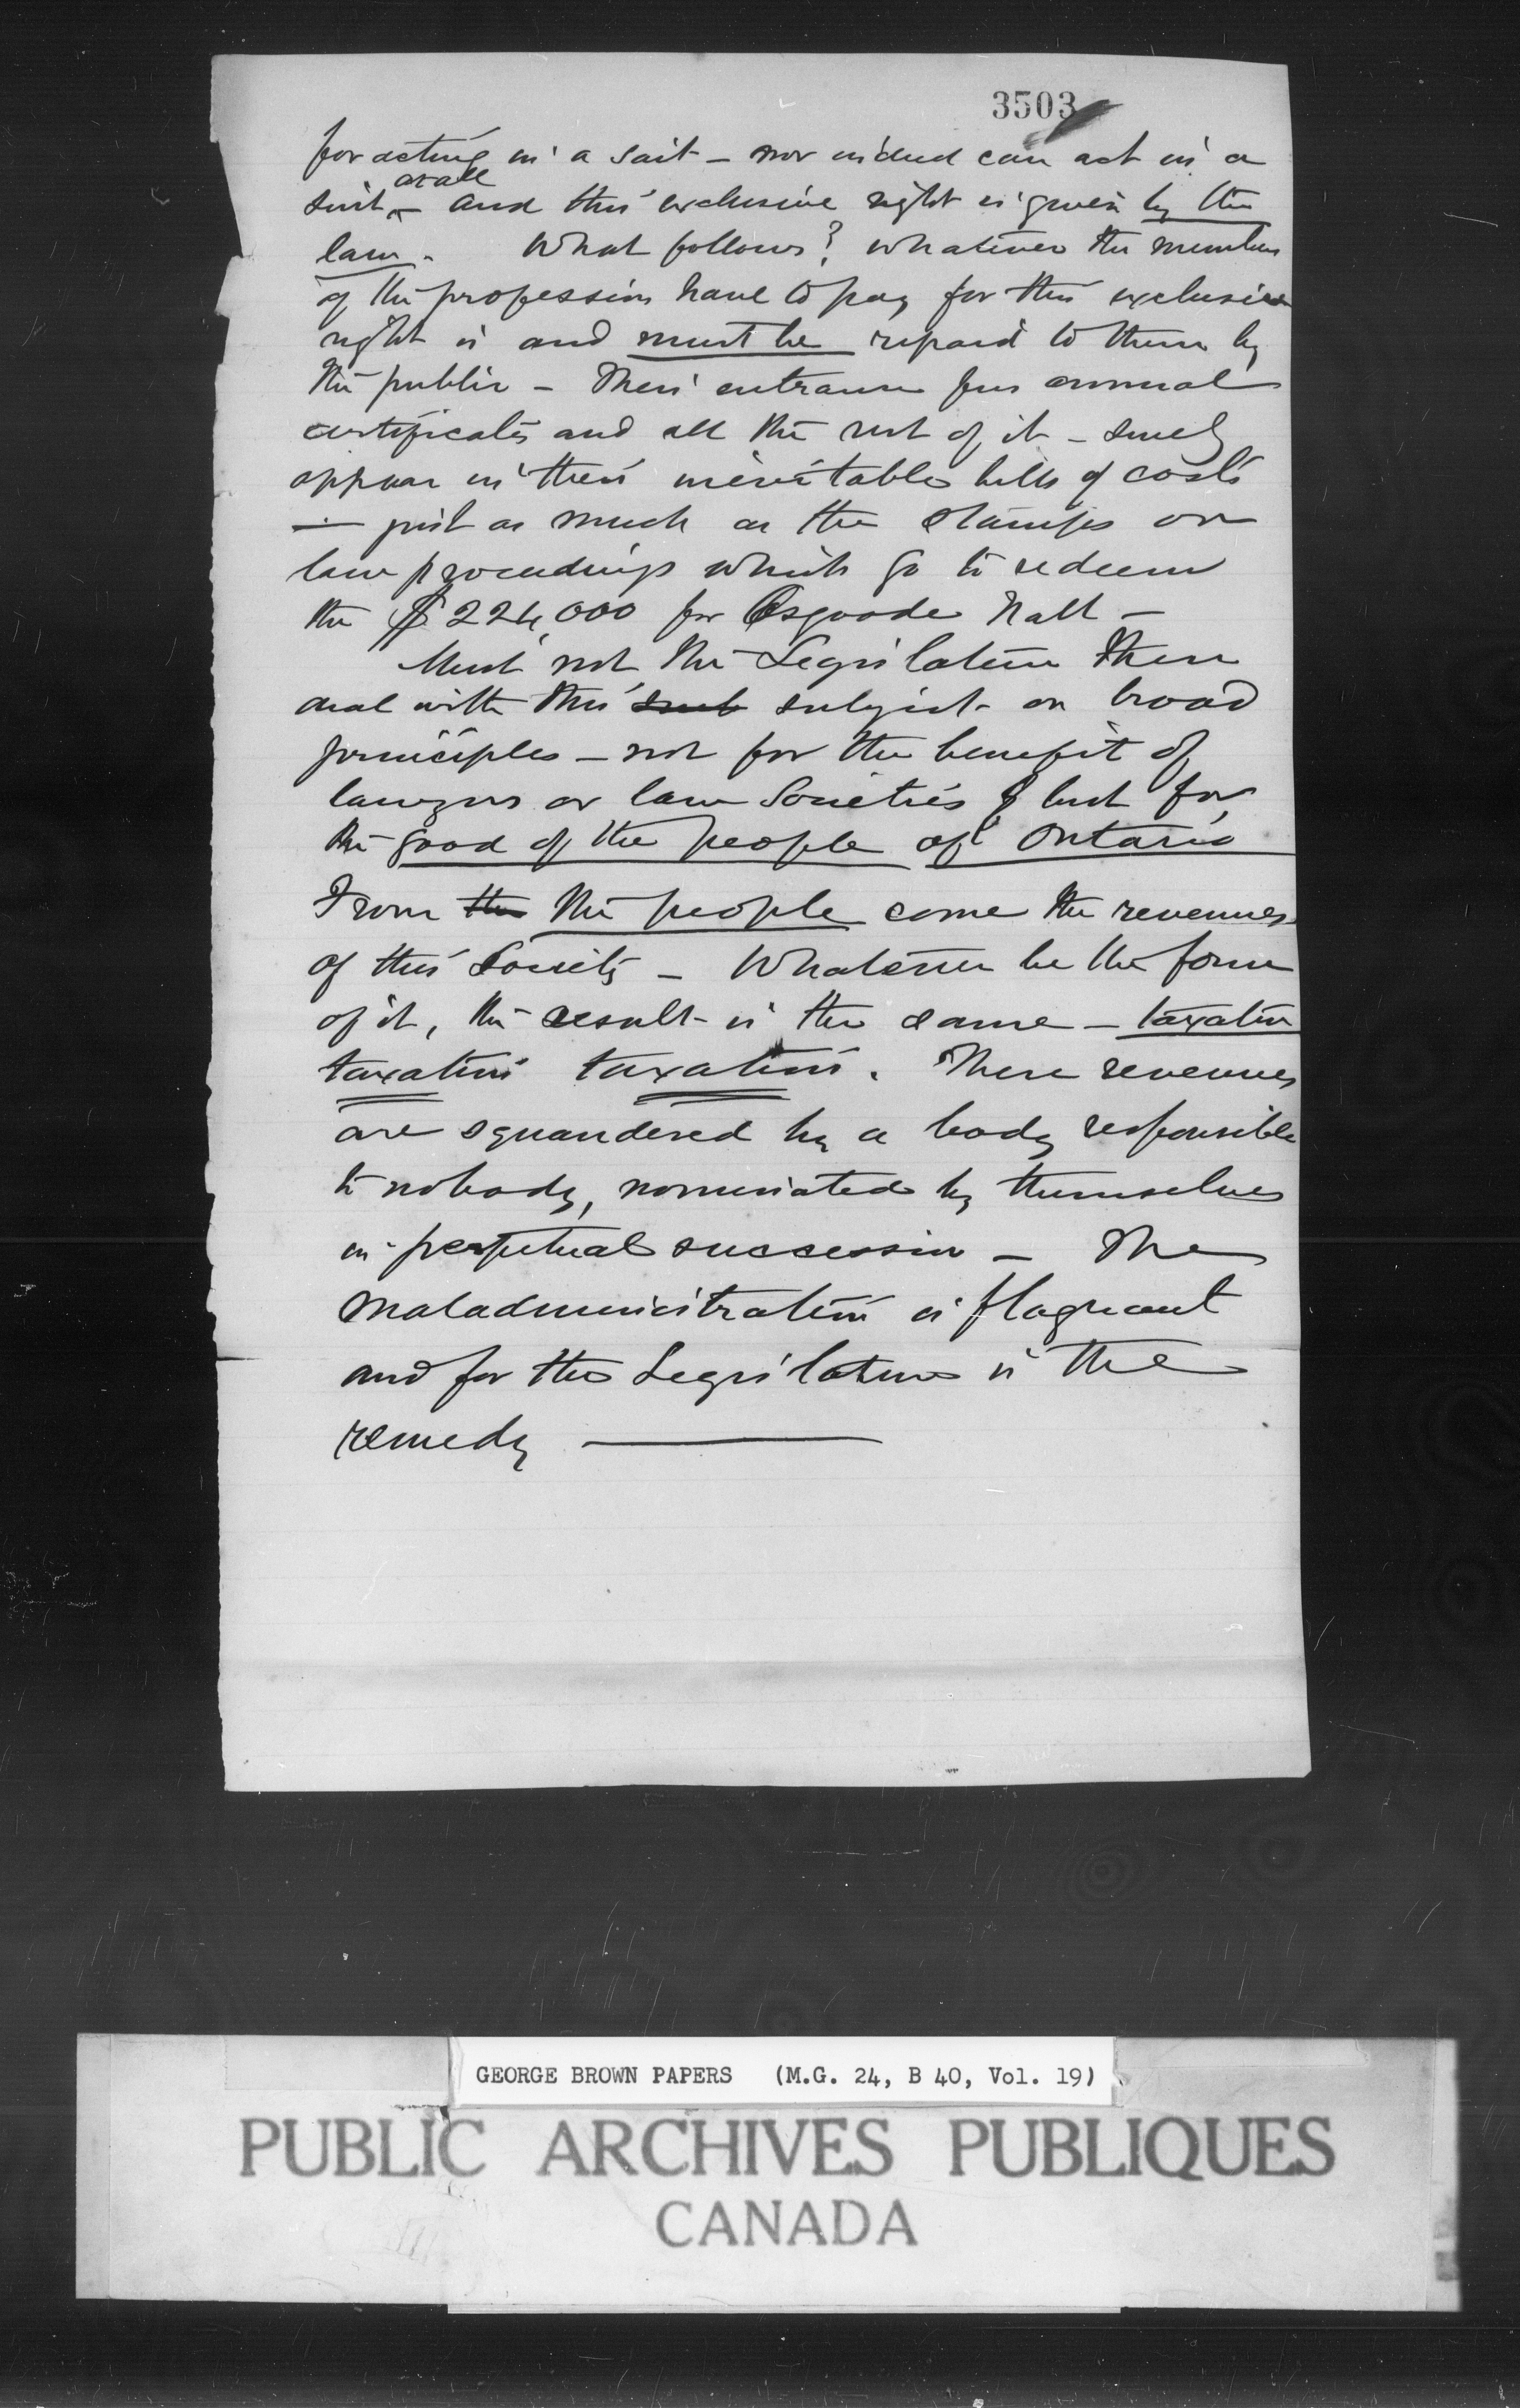 3503
for acting in a suit - nor indeed can act in a
at all
suit - and this exclusive right is given by the
law. What follows? Whatever the members
of the profession have to pay for this exclusive
right is and must be repaid to them by
the public - Their entrance fees annual
certificates and all the rest of it - surely
appear in their inevitable bills of costs
- just as much as the stamps on
law proceedings which go to redeem
the $224,000 for Osgoode Hall -
Must not the Legislature then
deal with this sub subject on broad
principles - not for the benefit of
lawyers or law Societies but for
the good of the people of Ontario
From the the people come the revenues
of this Society - Whatever be the form
of it, the result is the same - taxation
taxation taxation. These revenues
are squandered by a body responsible
to nobody, nominated by themselves
in perpetual succession - The
maladministration is flagrant
and for the Legislature is the
remedy
GEORGE BROWN PAPERS (M.G. 24, B 40, Vol. 19)
PUBLIC ARCHIVES PUBLIQUES
CANADA